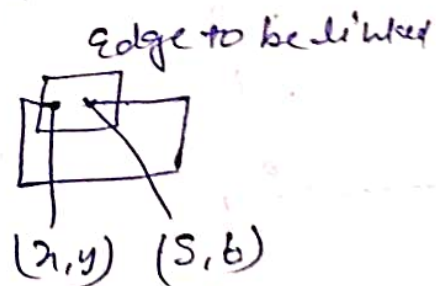 Edge to be linked
(x,y) (s,t)